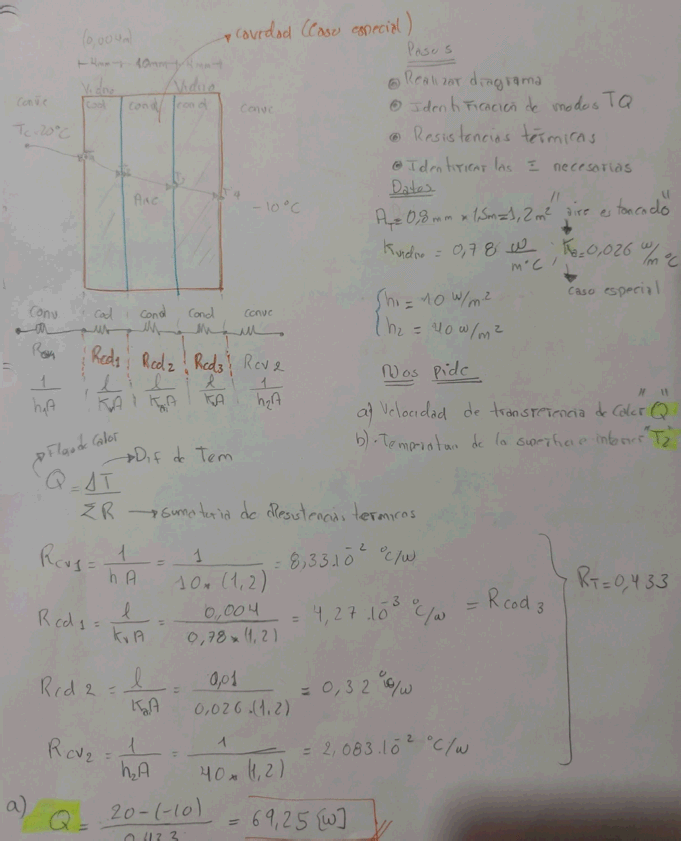 (0,004m)
cavidad (Caso especial)
4mm 10mm 4mm
Vidrio Vidrio
conve cod cond cond conve
T∞=20°C
Aire
T4
-10°C
Pasos
Realizar diagrama
Identificación de modos TQ
Resistencias térmicas
Identificar las Σ necesarias
Datos
AT=0,8mm × 1,5m=1,2m² "aire estancado"
Kvidrio = 0,78 W/m°C ; Ka=0,026 W/m°C
caso especial
h1 = 10 W/m²
h2 = 40 W/m²
Nos pide
a) Velocidad de transferencia de Calor "Q"
b) Temperatura de la superficie interior "T2"
Conv Cod Cond Cond Conve
Rcd1 Rcd2 Rcd3 Rcv2
1/h1A l/KvA l/KaA l/KvA 1/h2A
Flujo de Calor
Dif de Tem
Q = ΔT/ΣR
sumatoria de Resistencias termicas
Rcv1 = 1/hA = 1/10*(1,2) = 8,33.10⁻² °C/W
Rcd1 = l/KvA = 0,004/0,78*(1,2) = 4,27.10⁻³ °C/W = Rcod3
RT=0,433
Rcd2 = l/KaA = 0,01/0,026.(1,2) = 0,32 °C/W
Rcv2 = 1/h2A = 1/40*(1,2) = 2,083.10⁻² °C/W
a) Q = 20-(-10)/0,433 = 69,25 [W]